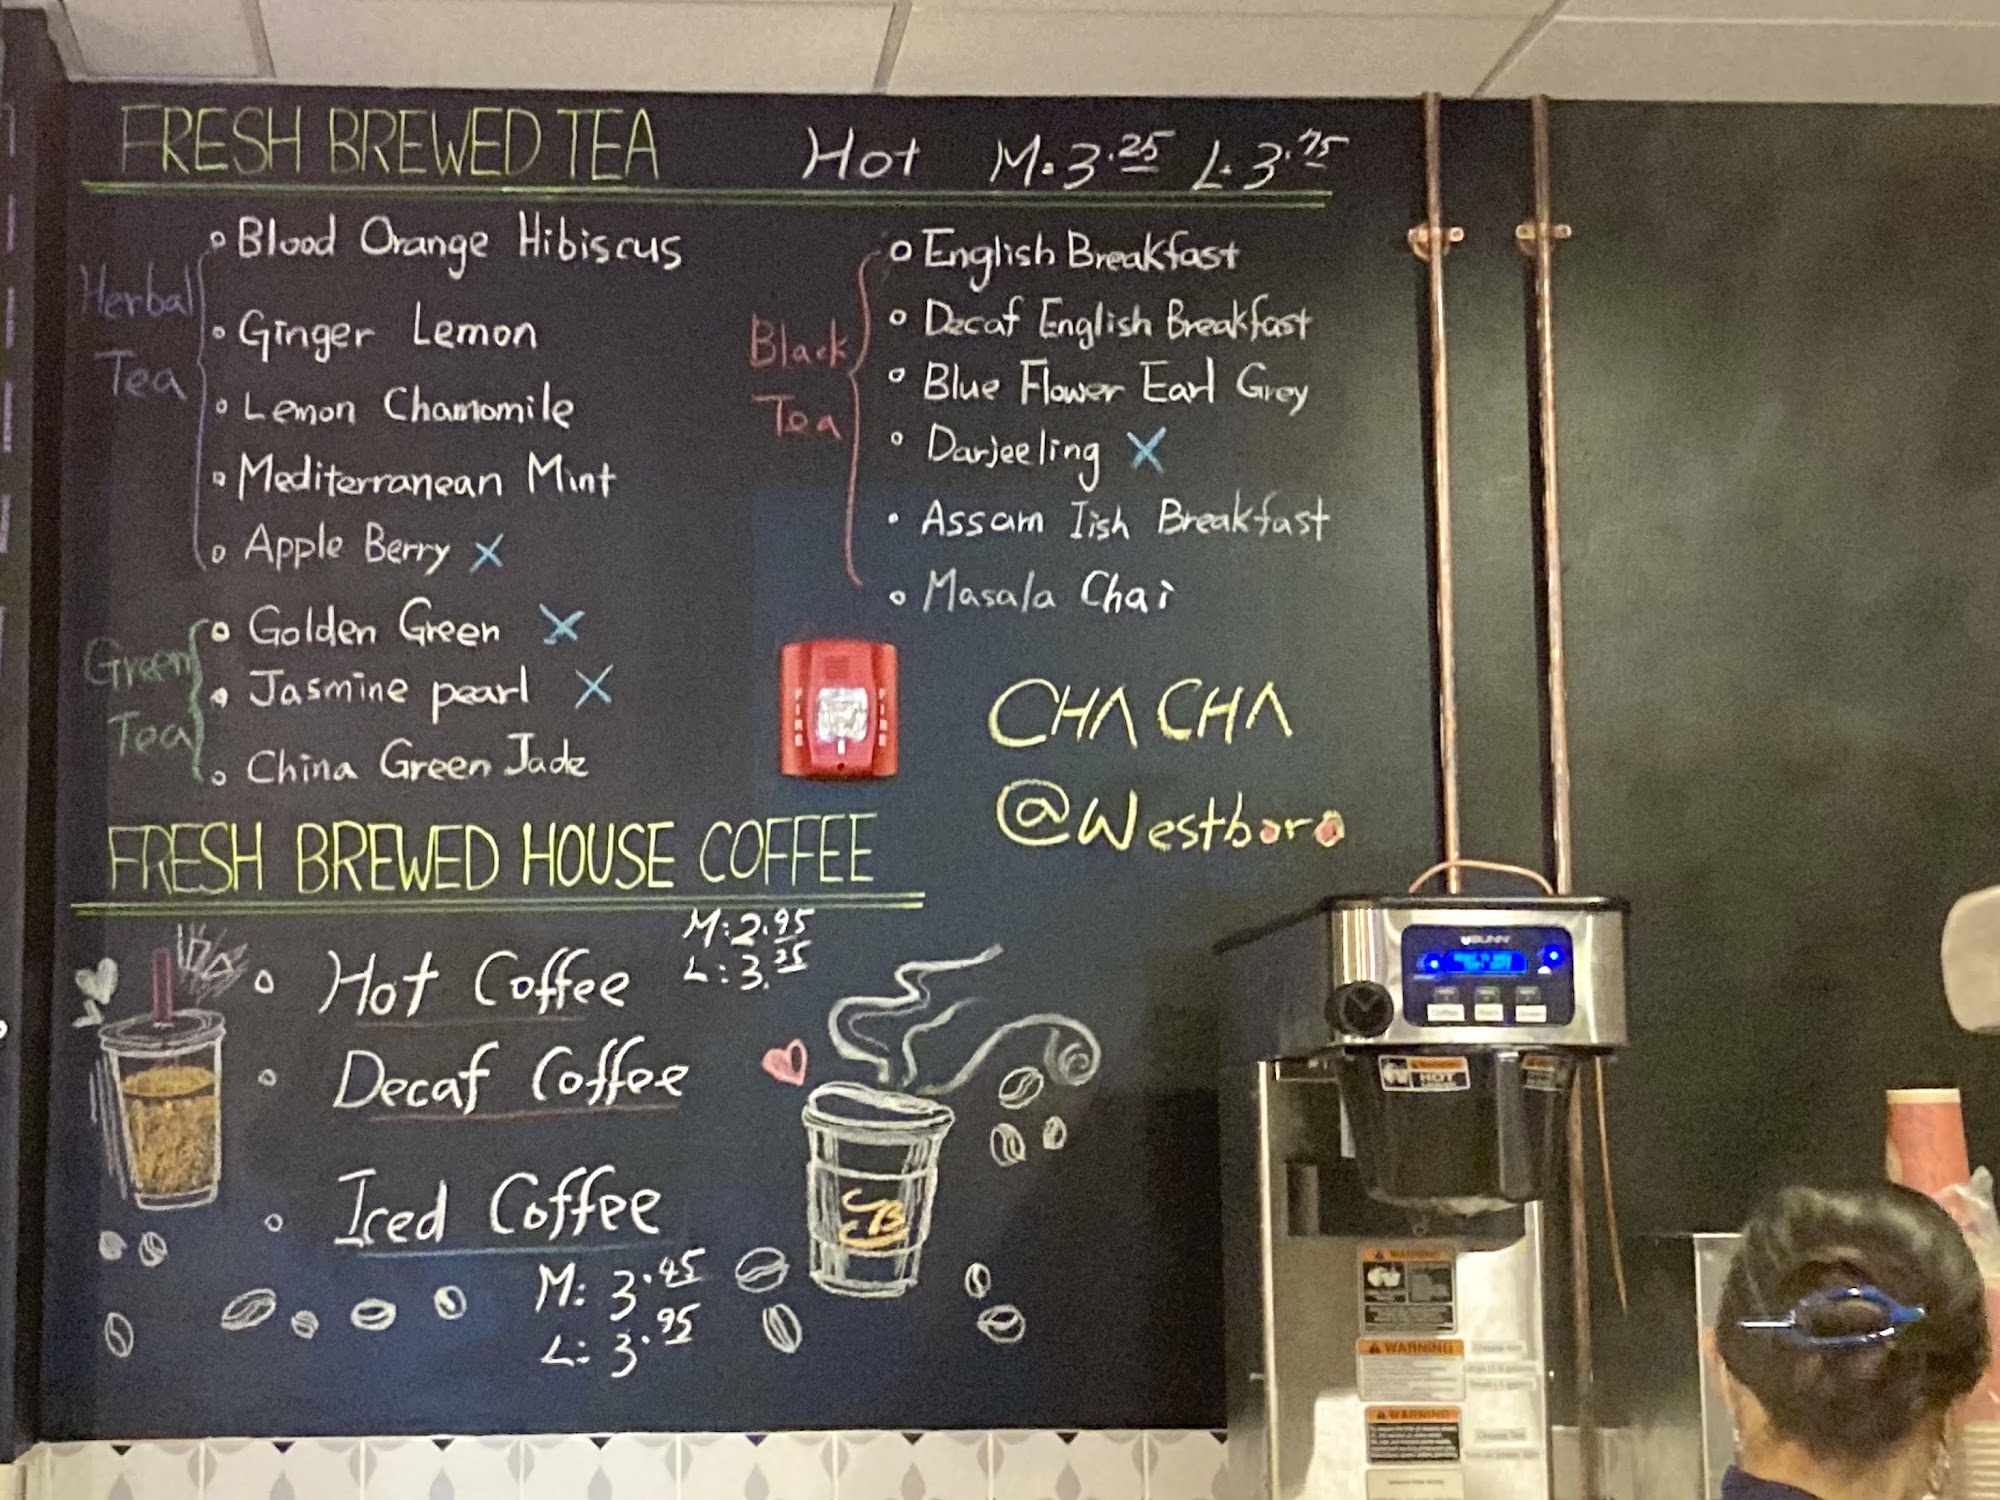 FRESH BREWED TEA Hot M.3.25 L.3.75
Herbal Tea
Blood Orange Hibiscus
Ginger Lemon
Lemon Chamomile
Mediterranean Mint
Apple Berry X
Green Tea
Golden Green X
Jasmine pearl X
China Green Jade
Black Tea
English Breakfast
Decaf English Breakfast
Blue Flower Earl Grey
Darjeeling X
Assam Iish Breakfast
Masala Chai
FIRE FIRE
CHA CHA
@Westboro
FRESH BREWED HOUSE COFFEE
Hot Coffee M:2.95
L:3.25
Decaf Coffee
Iced Coffee
M: 3.45
L: 3.95
CB
BUNN
HOT
WARNING
WARNING
WARNING